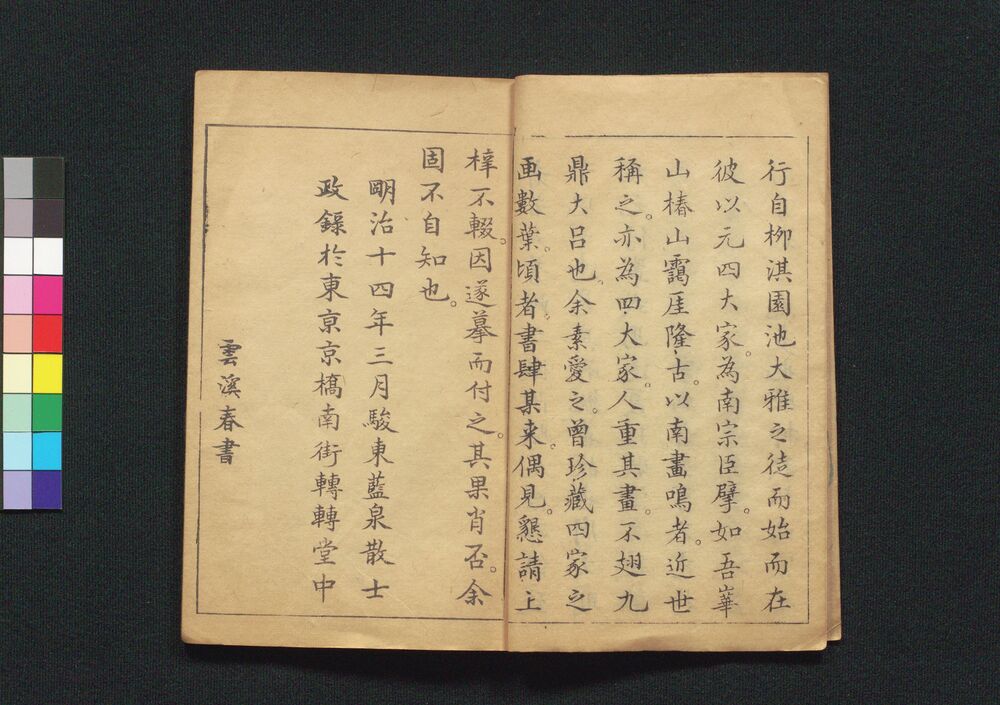 行自柳淇園池大雅之徒而始而在
彼以元四大家。為南宗臣擘。如吾崋
山椿山靄厓隆古。以南畫鳴者。近世
稱之。亦為四大家。人重其畫。不翅九
鼎大呂也。余素愛之。曽珍藏四家之
画數葉。頃者書肆某来。偶見。懇請上
梓不輟。因遂摹而付之。其果肖否。余
固不自知也。
明治十四年三月駿東藍泉散士
政錄於東京京橋南街轉轉堂中
雲溪春書